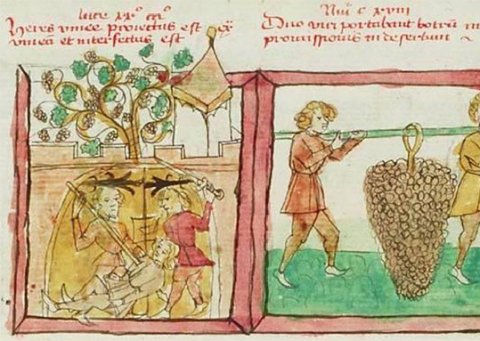 luce xx° ca°
Heres vinee proiectus est ex
vinea et interfectus est
Nūi c xviii
Duo viri portabant botrū in
promissionis in desertum